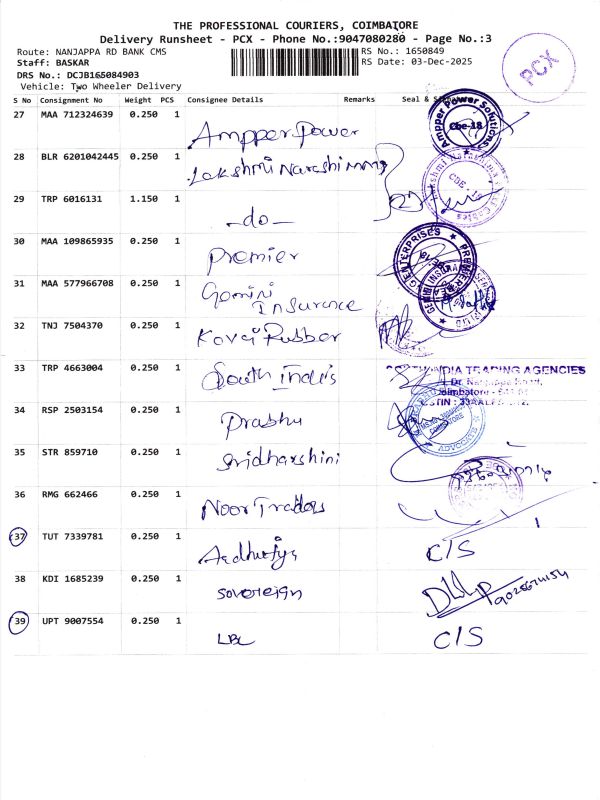 THE PROFESSIONAL COURIERS, COIMBATORE
Delivery Runsheet - PCX - Phone No.:9047080280 - Page No.:3
Route: NANJAPPA RD BANK CMS
RS No.: 1650849
Staff: BASKAR
RS Date: 03-Dec-2025
DRS No.: DCJB165084903
Vehicle: Two Wheeler Delivery
PCX
S No Consignment No Weight PCS Consignee Details Remarks Seal &
27 MAA 712324639 0.250 1 Ampper Power
Ampper Power Solutions
Cbe-18
28 BLR 6201042445 0.250 1 Lakshmi Narashimma
29 TRP 6016131 1.150 1 -do-
30 MAA 109865935 0.250 1 Premier
ENTERPRISES
31 MAA 577966708 0.250 1 Gemini Insurance
32 TNJ 7504370 0.250 1 Kovai Rubber
33 TRP 4663004 0.250 1 South India's
INDIA TRADING AGENCIES
34 RSP 2503154 0.250 1 Prabhu
35 STR 859710 0.250 1 Sridharshini
36 RMG 662466 0.250 1 Noor Traders
37 TUT 7339781 0.250 1 C/S
38 KDI 1685239 0.250 1 Sovereign
39 UPT 9007554 0.250 1 LBL C/S